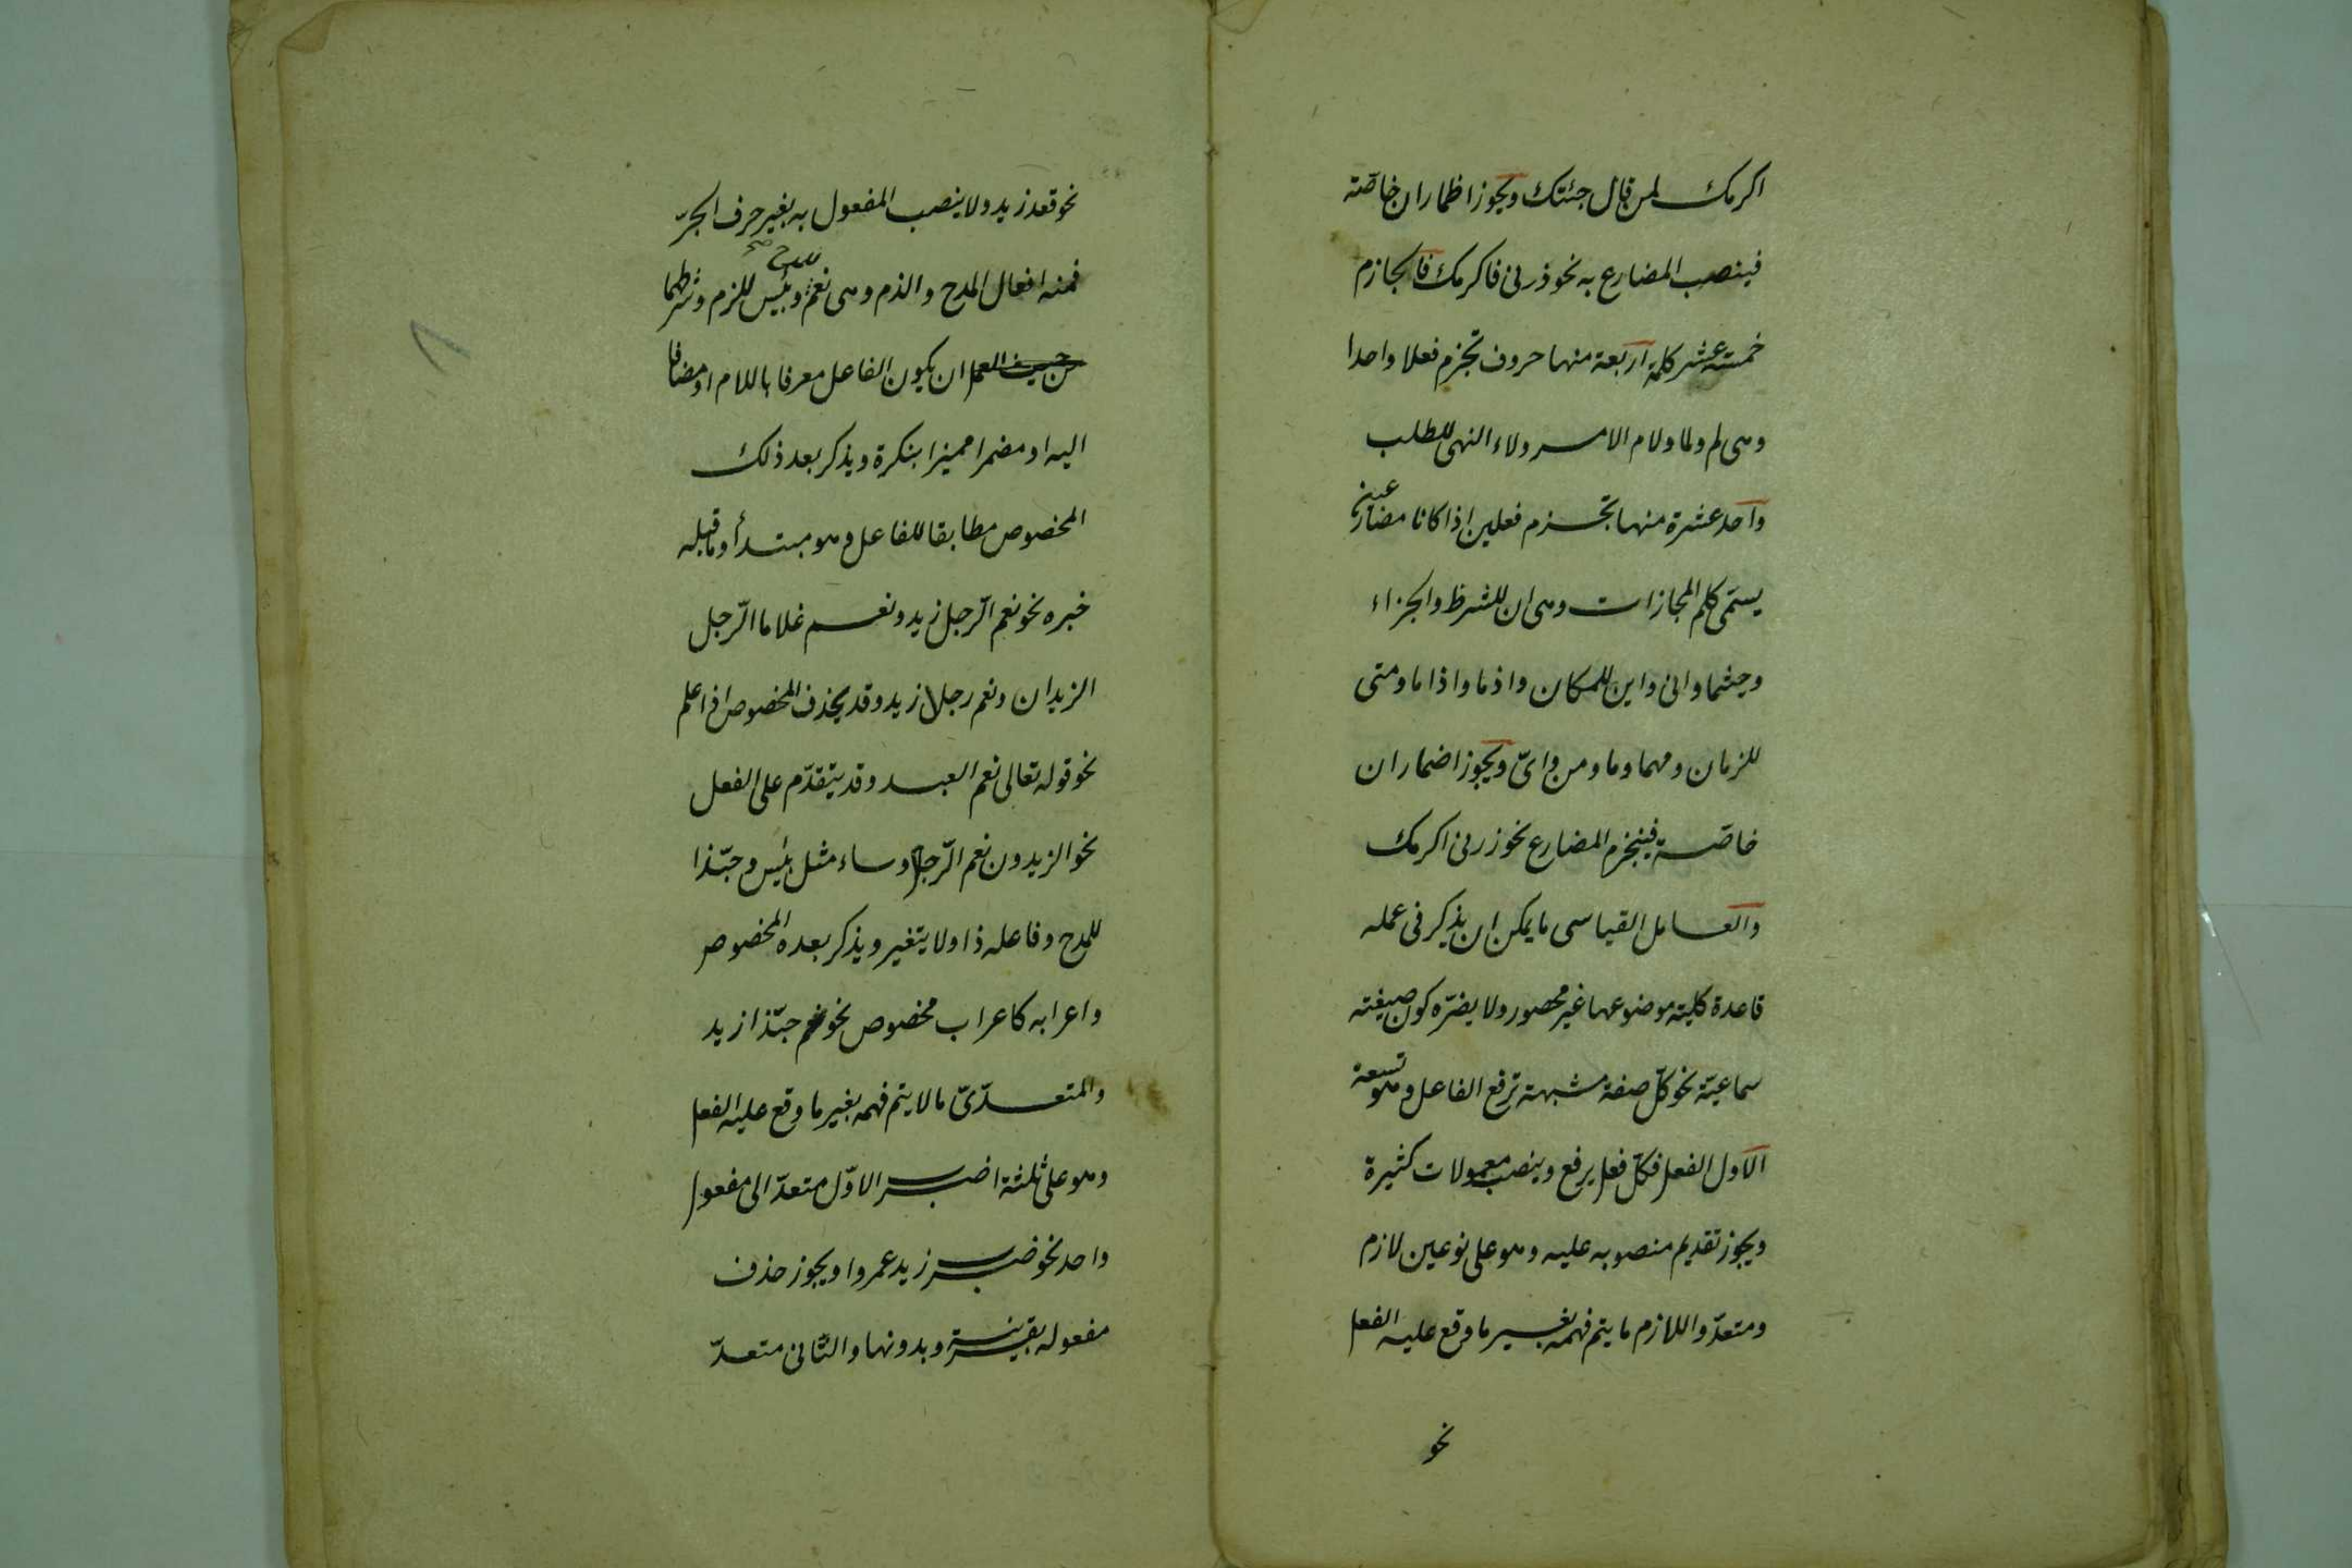 اكرمك لمن قال جئتك ويجوز اظمار ان خاصّة
فينصب المضارع به نحو ذرنى فاكرمك فالجازم
خمسة عشر كلمة اربعة منها حروف تجزم فعلا واحدا
وهى لم ولما ولام الامر ولاء النهى للطلب
واحد عشرة منها تجزم فعلين اذا كانا مضارعين
يسمّى كلم المجازات وهى ان للشرط والجزاء
وحيثما وانى واين للمكان واذما واذاما ومتى
للزمان ومهما وما ومن واىّ ويجوز اضمار ان
خاصّة فينجزم المضارع نحو زرنى اكرمك
والعامل القياسى ما يمكن ان يذكر فى عمله
قاعدة كلية موضوعها غير محصور ولا يضرّه كون صيغته
سماعيّة نحو كلّ صفة مشبهة ترفع الفاعل وهو تسعة
الاول الفعل فكلّ فعل يرفع وينصب معمولات كثيرة
ويجوز تقديم منصوبه عليه وهو على نوعين لازم
ومتعدّ واللازم ما يتم فهمه بغير ما وقع عليه الفعل
نحو
نحو قعد زيد ولا ينصب المفعول به بغير حرف الجرّ
فمنه افعال المدح والذم وهى نعم وبئس للزم وشرطهما
ان يكون الفاعل معرفا باللام او مضافا
اليه او مضمرا مميزا بنكرة ويذكر بعد ذلك
المخصوص مطابقا للفاعل وهو مبتدأ وما قبله
خبره نحو نعم الرّجل زيد ونعم غلاما الرّجل
الزيدان ونعم رجلا زيد وقد يحذف المخصوص اذا علم
نحو قوله تعالى نعم العبد وقد يتقدّم على الفعل
نحو الزيدون نعم الرّجال وساء مثل بئس وحبّذا
للمدح وفاعله ذا ولا يتغير ويذكر بعده المخصوص
واعرابه كاعراب مخصوص نحو نعم حبّذا زيد
والمتعدّىّ ما لا يتم فهمه بغير ما وقع عليه الفعل
وهو على ثلثة اضرب الاوّل متعدّ الى مفعول
واحد نحو ضرب زيد عمروا ويجوز حذف
مفعوله بقرينة وبدونها والثّانى متعدّ